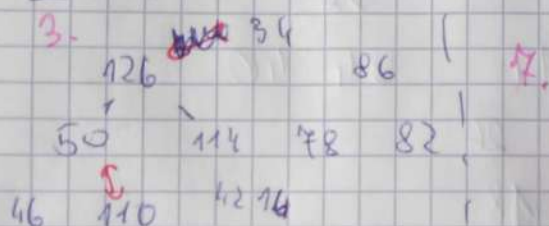 3. 34
126 86 7.
50 114 78 82
46 110 42 14